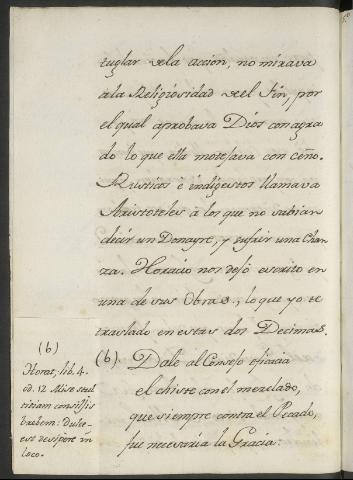 tuglar dela accion, no mirava
ala Religiosidad del fin, por
el qual aprobava Dios con agra
do lo que ella motejava con ceño.
Rusticos è indigestos llamava
Aristoteles à los que no sabian
decir un Donayre, y sufrir una Chan
za. Horacio nos dejó escrito en
una de sus Obras, lo que yo te
traslado en estas dos Decimas.
(b) Dale al Consejo eficacia
el chiste con el mezclado,
que siempre contra el Pecado,
fue necesaria la Gracia:
(b)
Horat. lib. 4.
od. 12 Misce stul
titiam consilijs
brebem: dulce
est desipere in
loco.